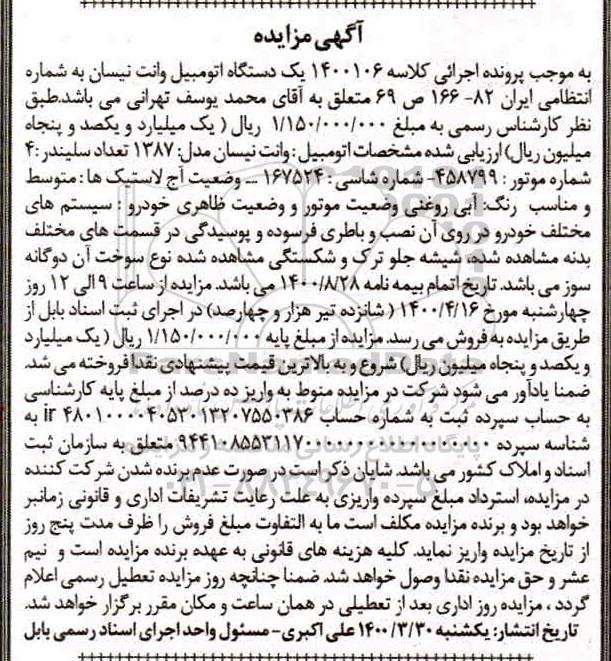 آگهی مزایده
به موجب پرونده اجرائی کلاسه ۱۴۰۰۱۰۶ یک دستگاه اتومبیل وانت نیسان به شماره
انتظامی ایران ۸۲- ۱۶۶ ص ۶۹ متعلق به آقای محمد یوسف تهرانی می باشد.طبق
نظر کارشناس رسمی به مبلغ ۱/۱۵۰/۰۰۰/۰۰۰ ریال ( یک میلیارد و یکصد و پنجاه
میلیون ریال) ارزیابی شده مشخصات اتومبیل : وانت نیسان مدل: ۱۳۸۷ تعداد سلیندر :۴
شماره موتور : ۴۵۸۷۹۹- شماره شاسی : ۱۶۷۵۲۴ – وضعیت آج لاستیک ها : متوسط
و مناسب رنگ: آبی روغنی وضعیت موتور و وضعیت ظاهری خودرو : سیستم های
مختلف خودرو در روی آن نصب و باطری فرسوده و پوسیدگی در قسمت های مختلف
بدنه مشاهده شده، شیشه جلو ترک و شکستگی مشاهده شده نوع سوخت آن دوگانه
سوز می باشد. تاریخ اتمام بیمه نامه ۱۴۰۰/۸/۲۸ می باشد. مزایده از ساعت ۹ الی ۱۲ روز
چهارشنبه مورخ ۱۴۰۰/۴/۱۶ ( شانزده تیر هزار و چهارصد) در اجرای ثبت اسناد بابل از
طریق مزایده به فروش می رسد. مزایده از مبلغ پایه ۱/۱۵۰/۰۰۰/۰۰۰ ریال ( یک میلیارد
و یکصد و پنجاه میلیون ریال) شروع و به بالاترین قیمت پیشنهادی نقدا فروخته می شد.
ضمنا یادآور می شود شرکت در مزایده منوط به واریز ده درصد از مبلغ پایه کارشناسی
به حساب سپرده ثبت به شماره حساب ir ۴۸۰۱۰۰۰۰۴۰۵۳۰۱۳۲۰۷۵۵۰۳۸۶ به
شناسه سپرده متعلق به سازمان ثبت
اسناد و املاک کشور می باشد. شایان ذکر است در صورت عدم برنده شدن شرکت کننده
در مزایده، استرداد مبلغ سپرده واریزی به علت رعایت تشریفات اداری و قانونی زمانبر
خواهد بود و برنده مزایده مکلف است ما به التفاوت مبلغ فروش را ظرف مدت پنج روز
از تاریخ مزایده واریز نماید. کلیه هزینه های قانونی به عهده برنده مزایده است و نیم
عشر و حق مزایده نقدا وصول خواهد شد. ضمنا چنانچه روز مزایده تعطیل رسمی اعلام
گردد ، مزایده روز اداری بعد از تعطیلی در همان ساعت و مکان مقرر برگزار خواهد شد.
تاریخ انتشار: یکشنبه ۱۴۰۰/۳/۳۰ علی اکبری- مسئول واحد اجرای اسناد رسمی بابل